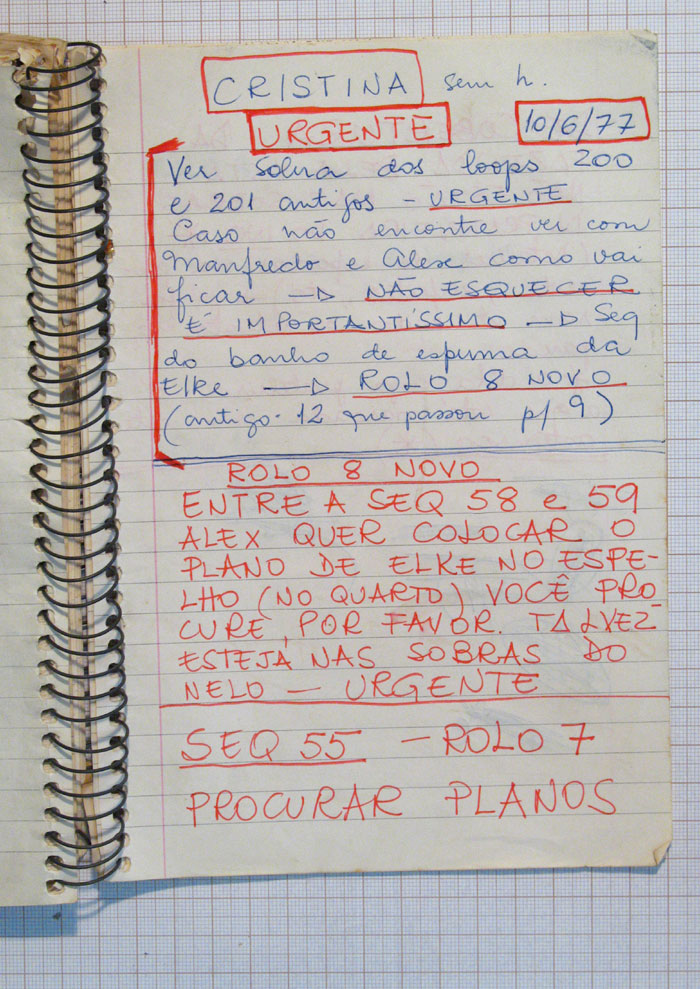 CRISTINA sem h.
URGENTE 10/6/77
Ver sobra dos loops 200
e 201 antigos - URGENTE
Caso não encontre ver com
Manfredo e Alex como vai
ficar → NÃO ESQUECER
É IMPORTANTÍSSIMO → Seq
do banho de espuma da
Elke → ROLO 8 NOVO
(antigo 12 que passou p/ 9)
ROLO 8 NOVO
ENTRE A SEQ 58 e 59
ALEX QUER COLOCAR O
PLANO DE ELKE NO ESPE-
LHO (NO QUARTO) VOCÊ PRO
CURE, POR FAVOR. TALVEZ
ESTEJA NAS SOBRAS DO
NELO — URGENTE
SEQ 55 - ROLO 7
PROCURAR PLANOS